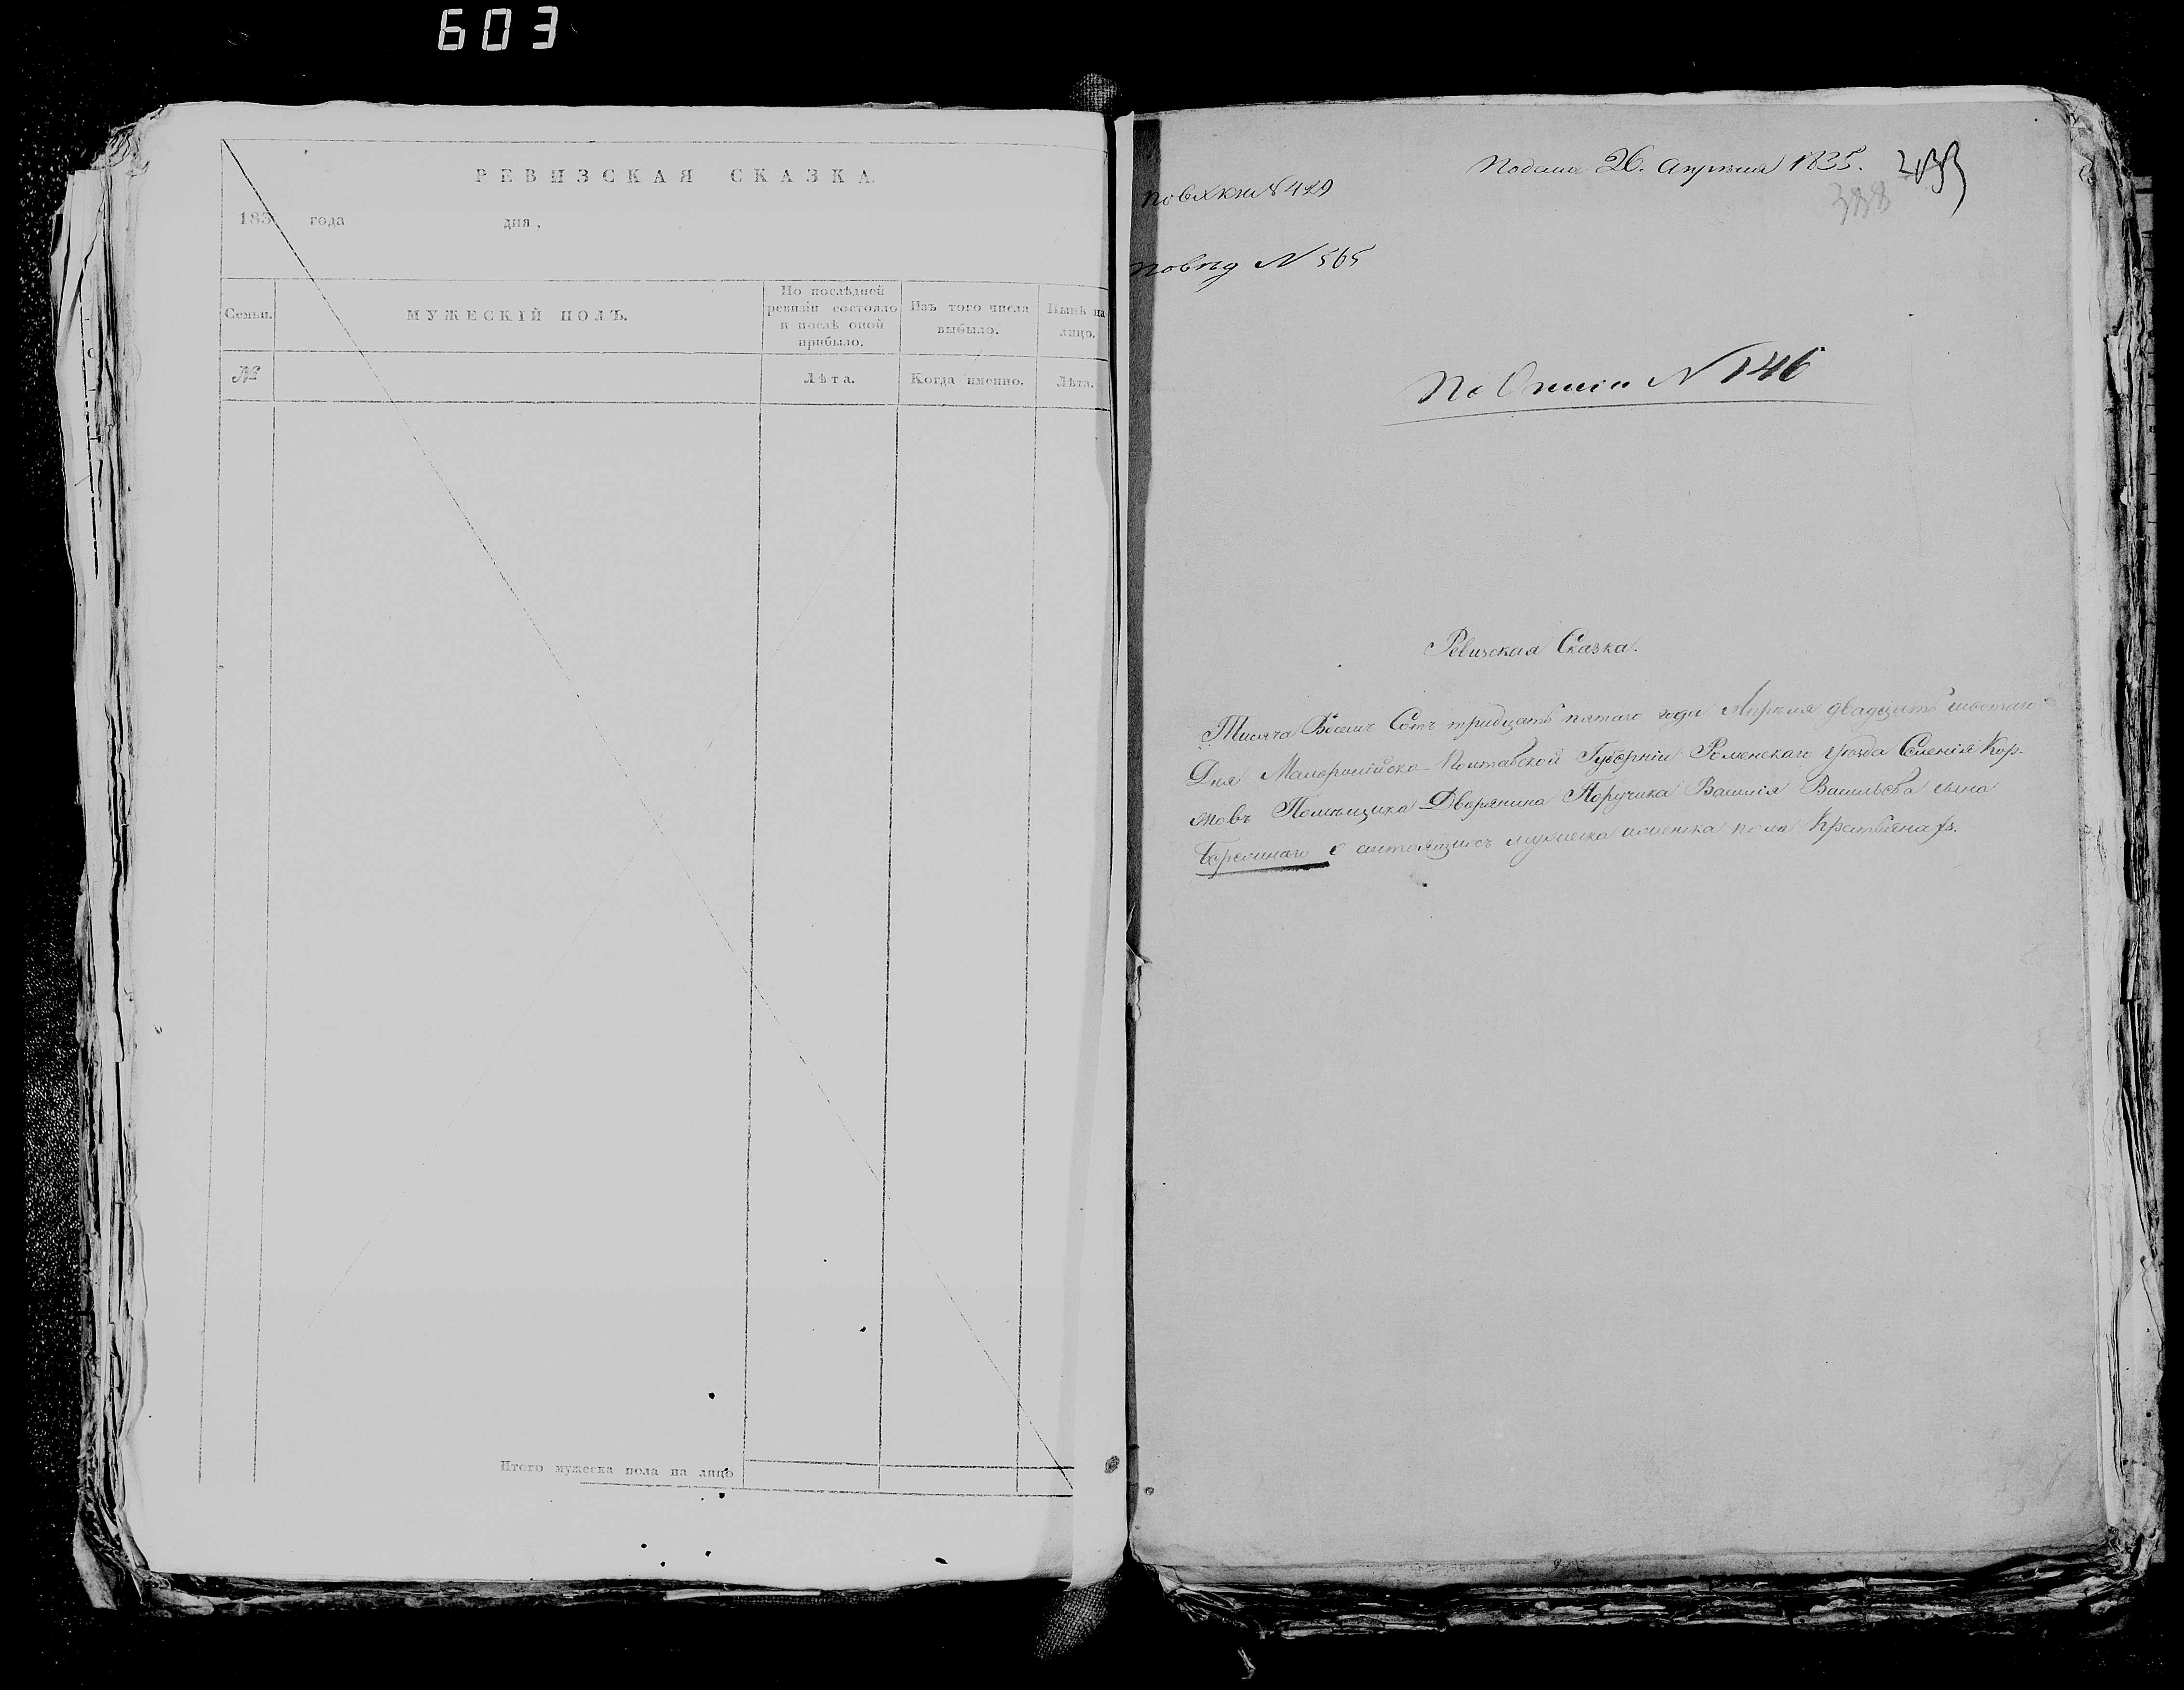 603
РЕВИЗСКАЯ СКАЗКА
183 года дня,
Семьи.
МУЖЕСКІЙ ПОЛЪ.
По послѣдней
ревизіи состояло
и послѣ оной
прибыло.
Изъ того числа
выбыло.
Нынѣ на
лицо.
№
Лѣта.
Когда именно.
Лѣта.
Итого мужеска пола на лицо
Подана 26. Апрѣля 1835.
388
№ 429
№ 565
По Описи № 146
Ревизская Сказка.
Тысяча Восемь Сотъ тридцать пятаго года Апрѣля двадцать шестаго
Дня Малоросійско-Полтавской Губерніи Роменского уѣзда Селенія Кор-
Помѣщика Дворянина Поручика Василія Васильева сына
мужеска и женска пола Крестьянахъ.